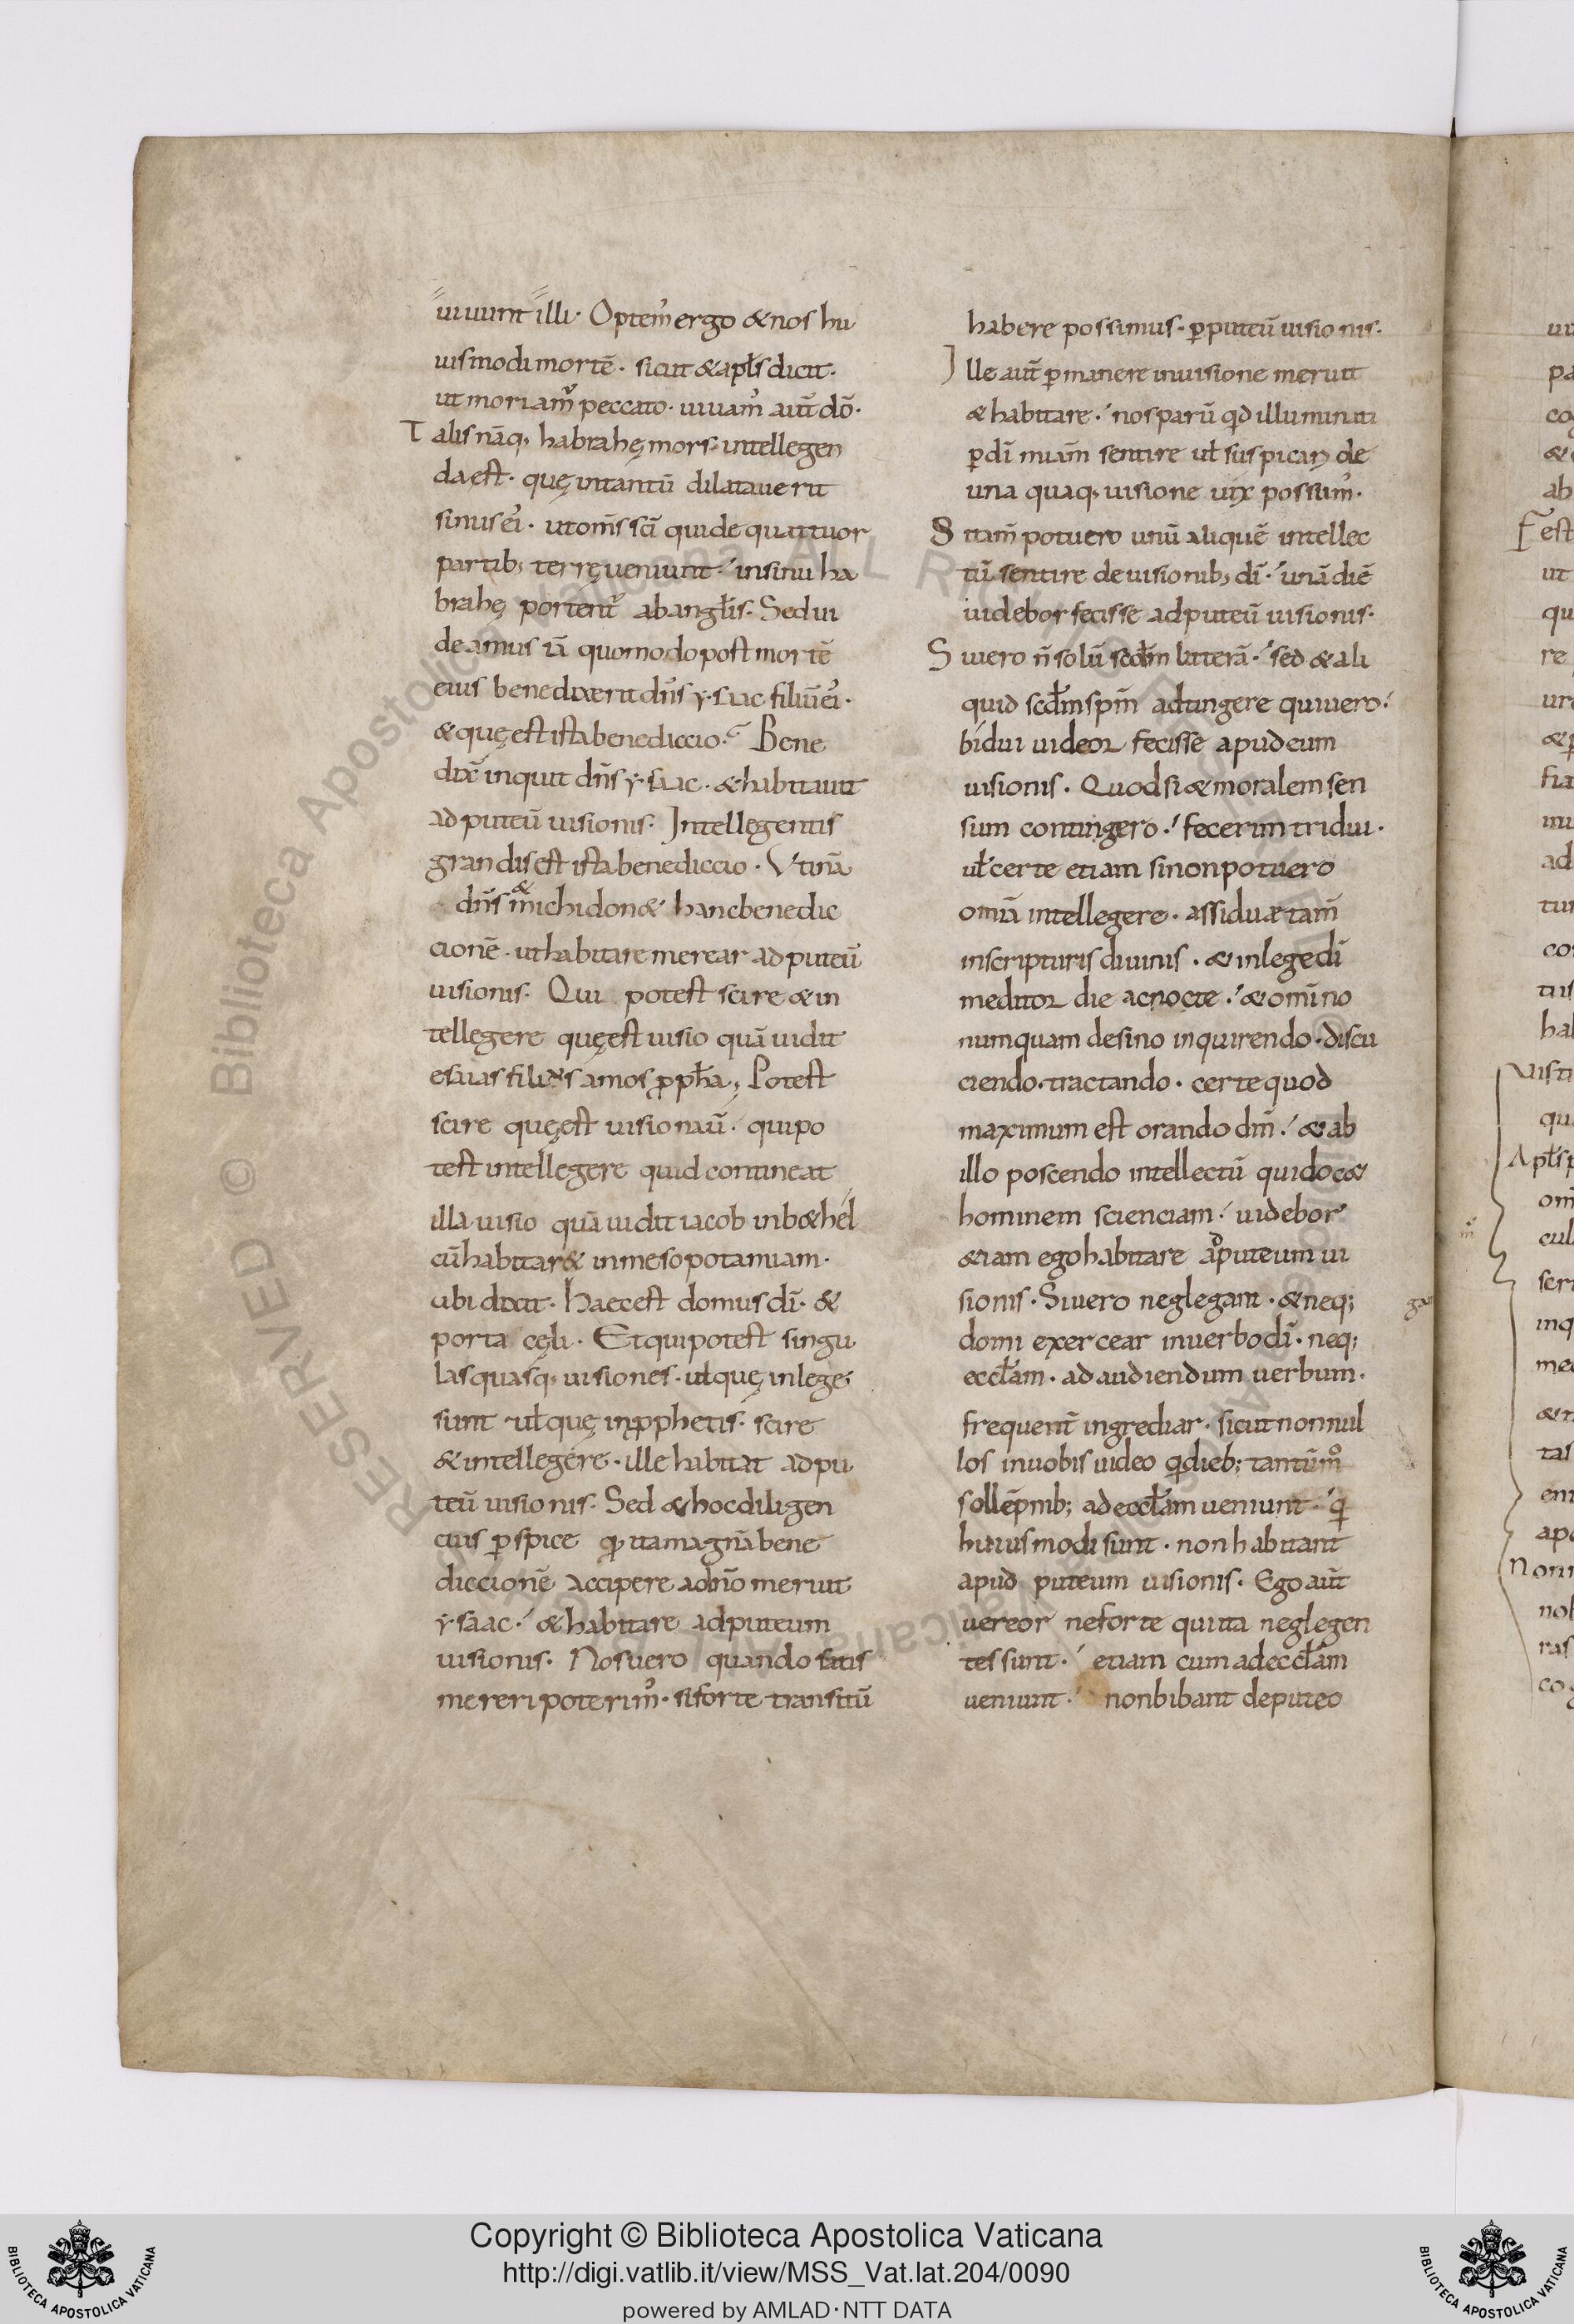 uiuunt illi· Optem᷒ ergo & nos hu
iusmodi mortē· sicut & apłs dicit·
ut moriam᷒ peccato· uiuam᷒ aut̄ dō·
Talis nāq; habrahę mors· intellegen
da est· quę intantū dilatauerit
sinus ei᷒· ut om̄s sc̄i qui de quattuor
partib; terrę ueniunt· insinu ha
brahę portent᷒ ab angłis· Sed ui
deamus iā quomodo post mortē
eius benedixerit dn̄s ysaac filiū ei᷒·
& quę est ista benediccio· Bene
dix̄ inquit dn̄s ysaac· & habitauit
ad puteū uisionis· Intellegentis
grandis est ista benediccio· Utinā
dn̄s & michi don& hanc benedic
cionē· ut habitare merear ad puteū
uisionis· Qui potest scire & in
tellegere quę est uisio quā uidit
esaias filius amos ꝓph̄a; Potest
scire quę est uisio naū· qui po
test intellegere quid contineat
illa uisio quā uidit iacob in b&hel
cū habitar& in mesopotamiam·
ubi dixit· Haec est domus dī· &
porta cęli· Et qui potest singu
las quasq; uisiones· uł quę in lege
sunt uł quę in ꝓphetis· scire
& intellegere· ille habitat ad pu
teū uisionis· Sed & hoc diligen
cius ꝑspice qđ ita magnā bene
diccionē accipere a dn̄o meruit
ysaac· & habitare ad puteum
uisionis· Nos uero quando satis
mereri poterim᷒· si forte transitū
habere possimus· ꝑ puteū uisionis·
Ille aut̄ ꝑmanere in uisione meruit
& habitare· nos parū qđ illuminati
ꝑ dī miam̄ sentire uł suspicari de
una quaq; uisione uix possum᷒·
Si tam̄ potuero unū aliquē intellec
tū sentire de uisionib; dī· unā diē
uidebor fecisse ad puteū uisionis·
Si uero n̄ solū scđm litterā· sed & ali
quid scđm spm̄ adtingere quiuero·
bidui uideor fecisse apud eum
uisionis· Quod si & moralem sen
sum contingero· fecerim tridui·
uł certe etiam si non potuero
omīa intellegere· assiduæ tam̄
in scripturis diuinis· & in lege dī
meditor die ac nocte· & omīno
numquam desino inquirendo· discu
ciendo· tractando· certe quod
maximum est orando dm̄· & ab
illo poscendo intellectū qui doc&
hominem scienciam· uidebor
&iam ego habitare ad puteum ui
sionis· Si uero neglegam· & neq;
domi exercear in uerbo dī· neq;
eccłam· ad audiendum uerbum·
frequent̄ ingrediar· sicut nonnul
los in uobis uideo qđ dieb; tantūm̊
sollēpnib; ad eccłam ueniunt· qđ
huiusmodi sunt· non habitant
apud puteum uisionis· Ego aut̄
uereor ne forte qui ita neglegen
tes sunt· etiam cum ad eccłam
ueniunt· non bibant de puteo
Copyright © Biblioteca Apostolica Vaticana
http://digi.vatlib.it/view/MSS_Vat.lat.204/0090
powered by AMLAD·NTT DATA
BIBLIOTECA APOSTOLICA VATICANA
BIBLIOTECA APOSTOLICA VATICANA